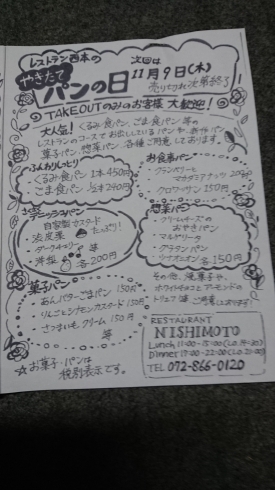 レストラン西本の
やきたて
パンの日
次回は
11月9日(木)
売り切れ次第終了
TAKEOUTのみのお客様 大歓迎!
大人気! くるみ食パン、ごま食パン等の
レストランのコースでお出ししているパンや、新作パン
菓子パン、惣菜パン、各種ご用意しております。
ふんわりしっとり
くるみ食パン 1本450円
ごま食パン 1/2本290円
お食事パン
クランベリーと
マカダミアナッツ 200円
クロワッサン 150円
デニッシュパン
自家製カスタード
たっぷり!
・渋皮栗
・ダークチェリー 等
・洋梨
各200円
惣菜パン
・クリームチーズの
おやきパン
・マルゲリータ
・グラタンパン
・ツナオニオン 各150円
菓子パン
・あんバターごまパン 150円
・りんごとシナモンカスタード 150円
・さつまいもクリーム 150円
等
その他、焼菓子や、
ホワイトチョコとアーモンドの
トリュフ 等 ご用意しております!
☆お菓子・パンは
税別表示です。
RESTAURANT
NISHIMOTO
Lunch 11:00-15:00(L.O 14:30)
Dinner 17:00-22:00(L.O 21:00)
TEL 072-866-0120